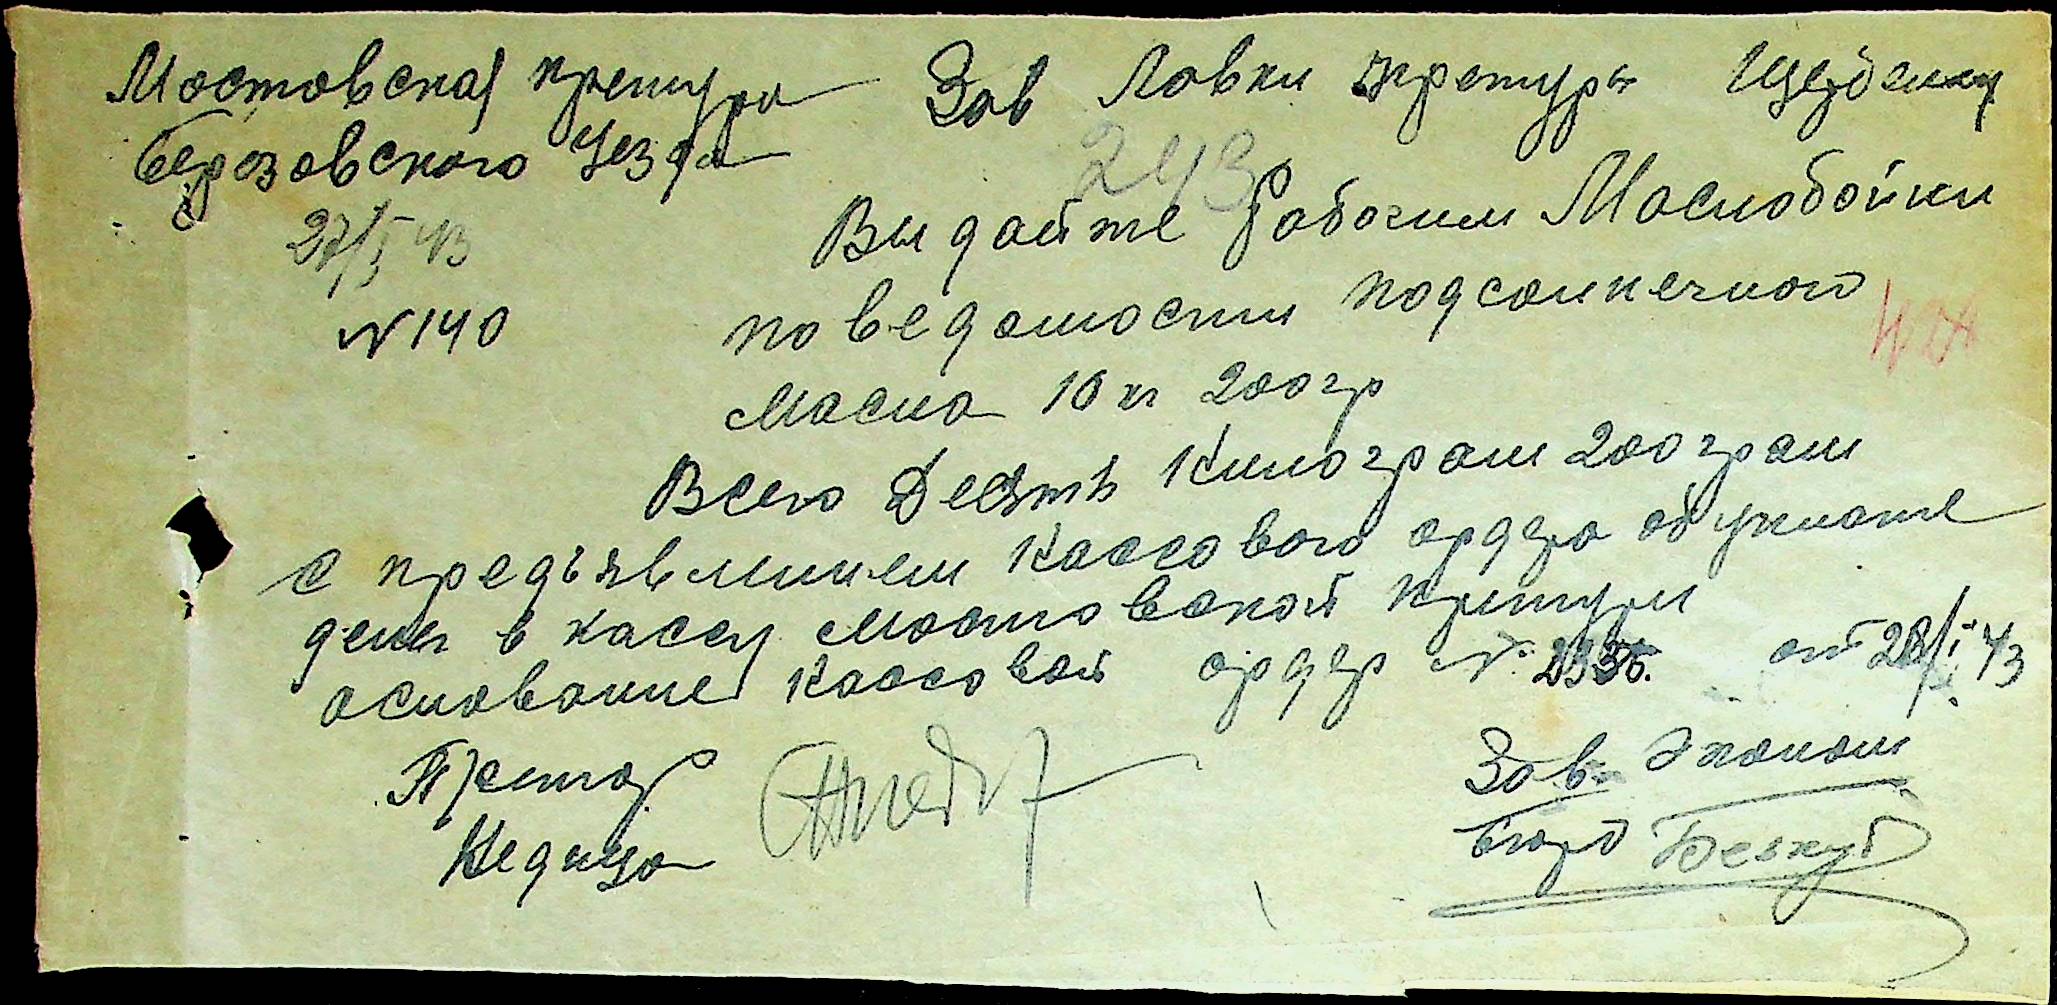 Мостовская претура
Березовского уезда
27/I 43
N 140
Зав Лавки претуры Щербенку
243
Выдайте Рабочим Маслобойки
по ведомости подсолнечного
Масла 10 кг 200 гр
Всего Десять Килограм 200 грам
с предъявлинием Кассового ордера об уплате
денег в кассу Мостовской претуры
основание Кассовый ордер № от 28/I 43
Претор
Недница
Зав. Эконом
бюро